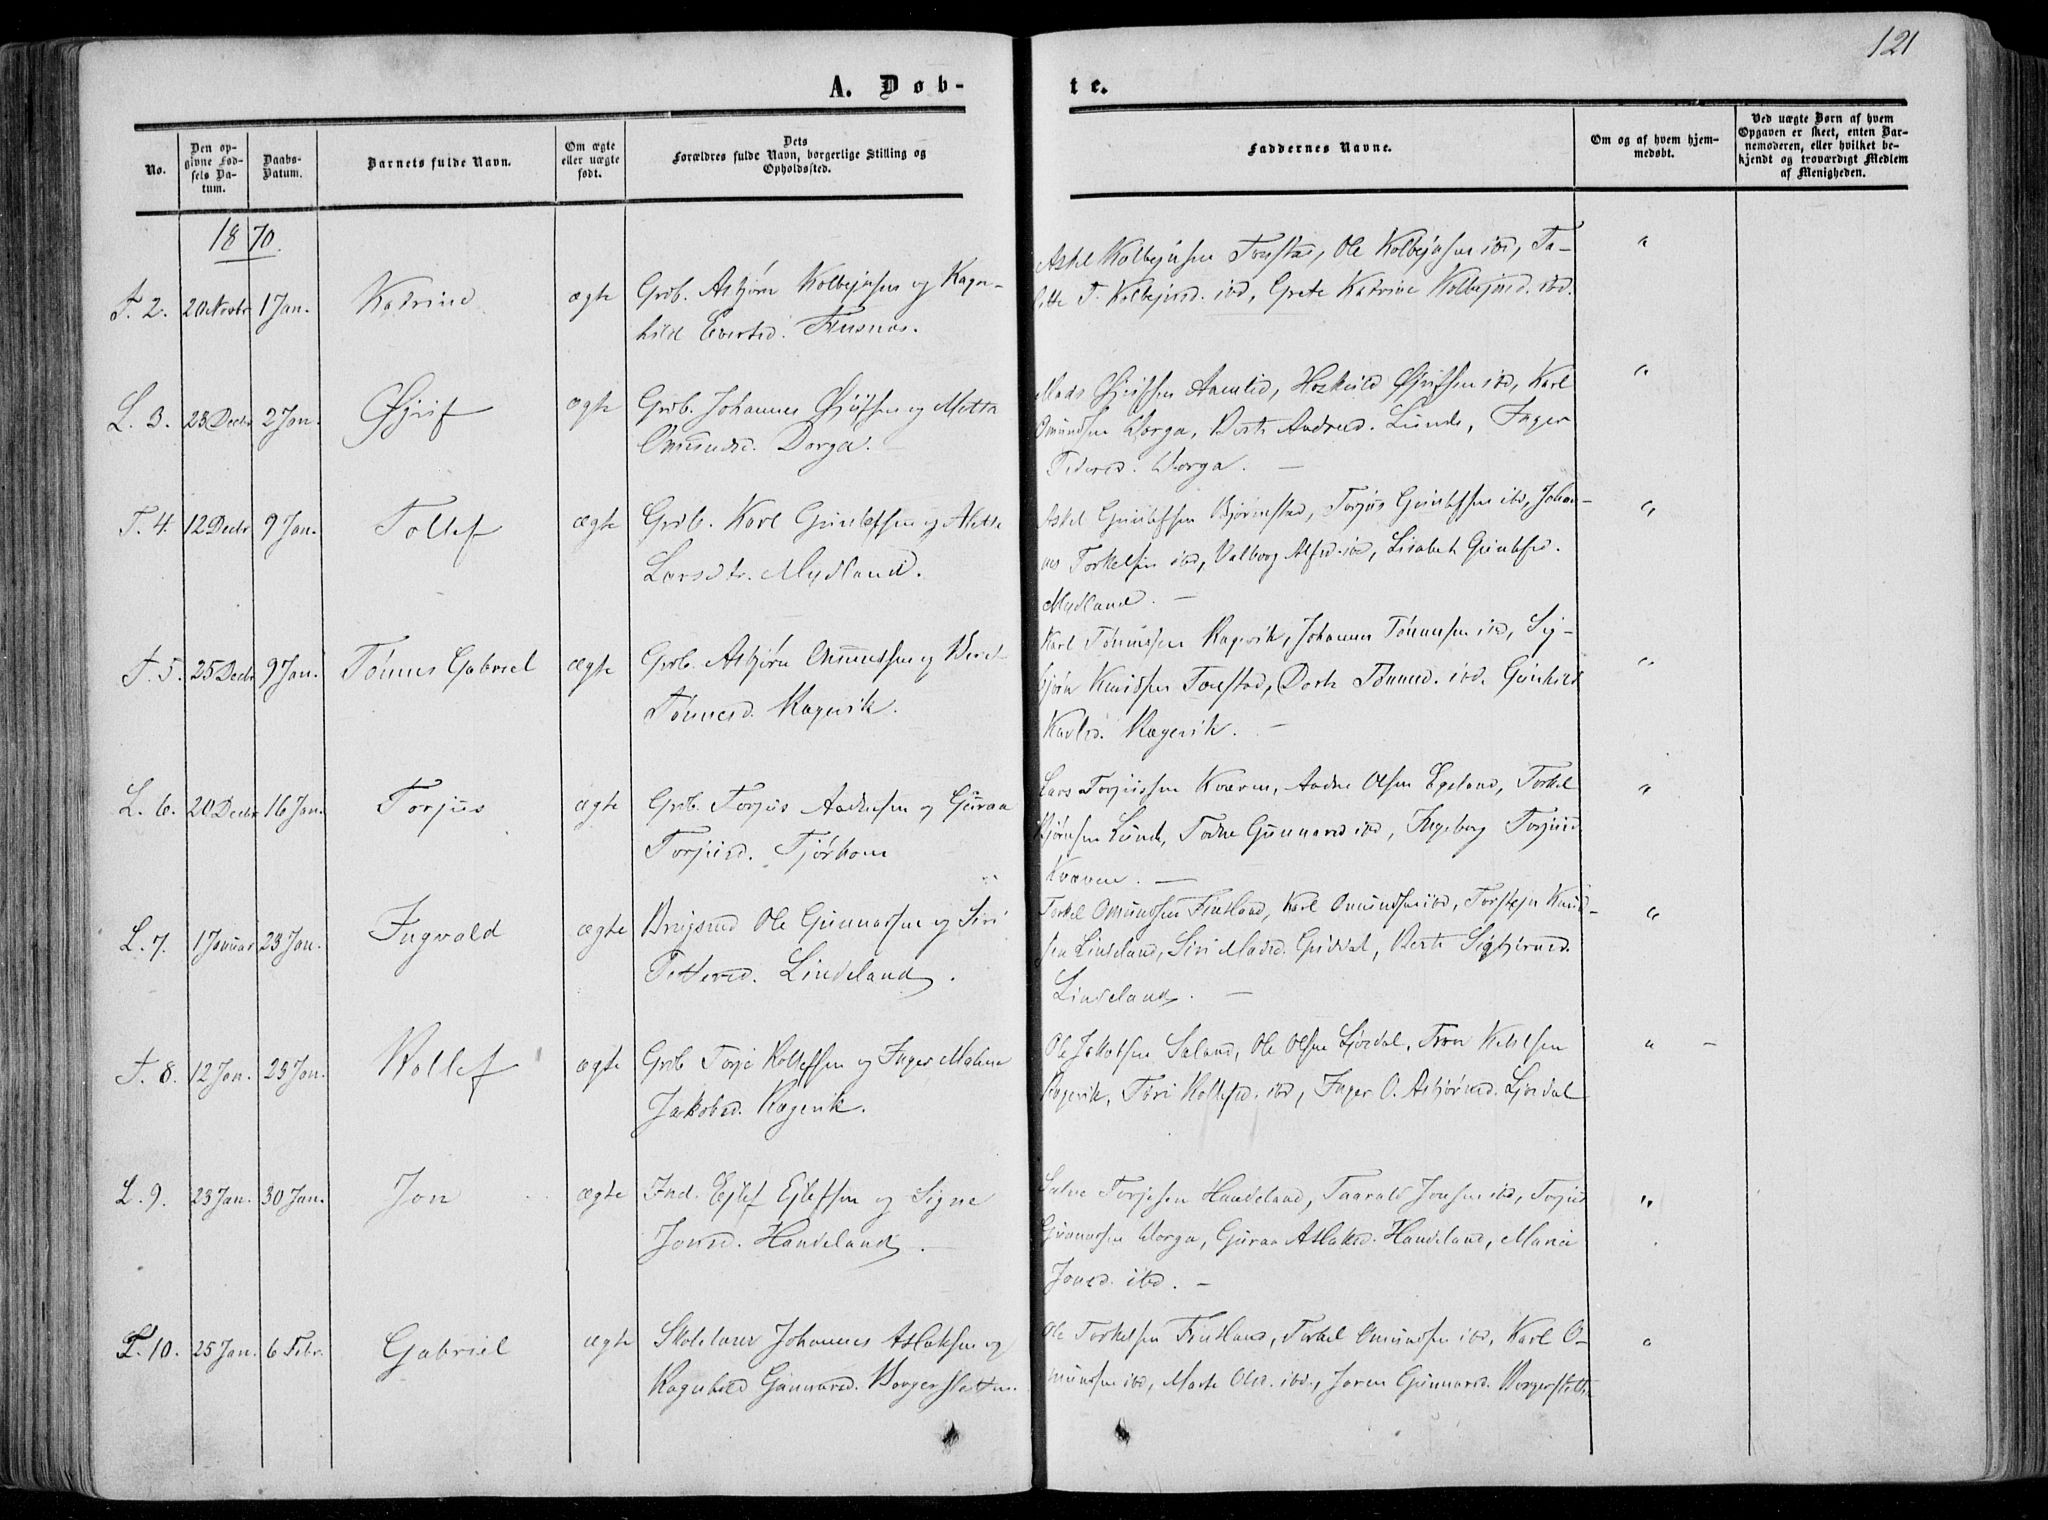 121
A. Døb-
te.
No.
Den op-
givne Fød-
sels Da-
tum.
Daabs-
Datum.
Barnets fulde Navn.
Om ægte
eller uægte
født.
Dets
Forældres fulde Navn, borgerlige Stilling og
Opholdssted.
Faddernes Navne.
Om og af hvem hjem-
medøbt.
Ved uægte Børn af hvem
Opgaven er skeet, enten Bar-
nemoderen, eller hvilket be-
kjendt og troværdigt Medlem
af Menigheden.
1870.
F. 2. 20 Novbr 1 Jan. Katrine ægte Grdb. Asbjørn Kolbejnsen og Ragn-
hild Evertsd.
Askel Kolbejnsen Tonstad, Ole Kolbejnsen ibd, Ta-
litte T. Kolbejnsd. ibd, Grete Katrine Kolbejnsd. ibd. "
L. 3. 23 Decbr 2 Jan. Øjulf ægte Grdb. Johannes Øjulfsen og Mette
Omundsd. Dorga.
Mads Øjulfsen Aamlid, Hoskuld Øjulfsen ibd, Karl
Omundsen Dorga, Berte Andersd. Lunde, Inger
Pedersd. Dorga. — "
T. 4. 12 Decbr 9 Jan. Tollef ægte Grdb. Karl Gunlefsen og Mette
Larsdtr. Mydland.
Askel Gunlefsen Bjørnstad, Torjus Gunlefsen ibd, Johan-
nes Torkelsen ibd, Valborg Alfsd. ibd, Lisabet Gunlefsd.
Mydland. — "
T. 5. 25 Decbr 9 Jan. Tønnes Gabriel ægte Grdb. Asbjørn Omundsen og Berit
Tønnesd. Røgevik.
Karl Tønnessen Røgevik, Johannes Tønnesen ibd, Sig-
bjørn Knudsen Tonstad, Dorte Tønnesd. ibd. Gunhild
Karlsd. Røgevik. — "
L. 6. 20 Decbr 16 Jan. Torjus ægte Grdb. Torjus Aadnesen og Guraa
Torjusd. Tjørhom
Lars Torjussen Kvæven, Aadne Olsen Egeland, Torkel
Bjørnsen Lunde, Todne Gunnarsd ibd, Ingeborg Torjusd.
Kvæven. — "
L. 7. 1 Januar 23 Jan. Ingvald ægte Brugsmd Ole Gunnarsen og Siri
Pettersd. Lindeland.
Torkel Omundsen Fintland, Karl Omundsen ibd, Torstejn Knud-
sen Lindeland, Siri Madsd. Gyddal, Berte Sigbjørnsd.
Lindeland. — "
T. 8. 12 Jan. 23 Jan. Rollef ægte Grdb Torje Rollefsen og Inger Malene
Jakobsd. Røgevik.
Ole Jakobsen Saland, Ole Olsen Ljosdal, Tron Ketelsen
Røgevik, Tori Rollefsd. ibd, Inger O. Asbjørnsd. Ljosdal " –
L. 9. 23 Jan. 30 Jan. Jon ægte Ind. Ejlef Ejlefsen og Signe
Jonsd. Handeland. —
Salve Torjesen Handeland, Taarald Jonsen ibd, Torjus
Gunnarsen Dorga, Guraa Aslaksd. Handeland, Maria
Jonsd. ibd. — "
T. 10. 25 Jan. 6 Febr. Gabriel ægte Skolelærer Johannes Aslaksen og
Ragnhild Gunnarsd. Borgersletten.
Ole Torkelsen Fintland, Torkel Omundsen ibd, Karl O-
mundsen ibd, Marte Olsd. ibd., Joren Gunnarsd. Borgersletten "